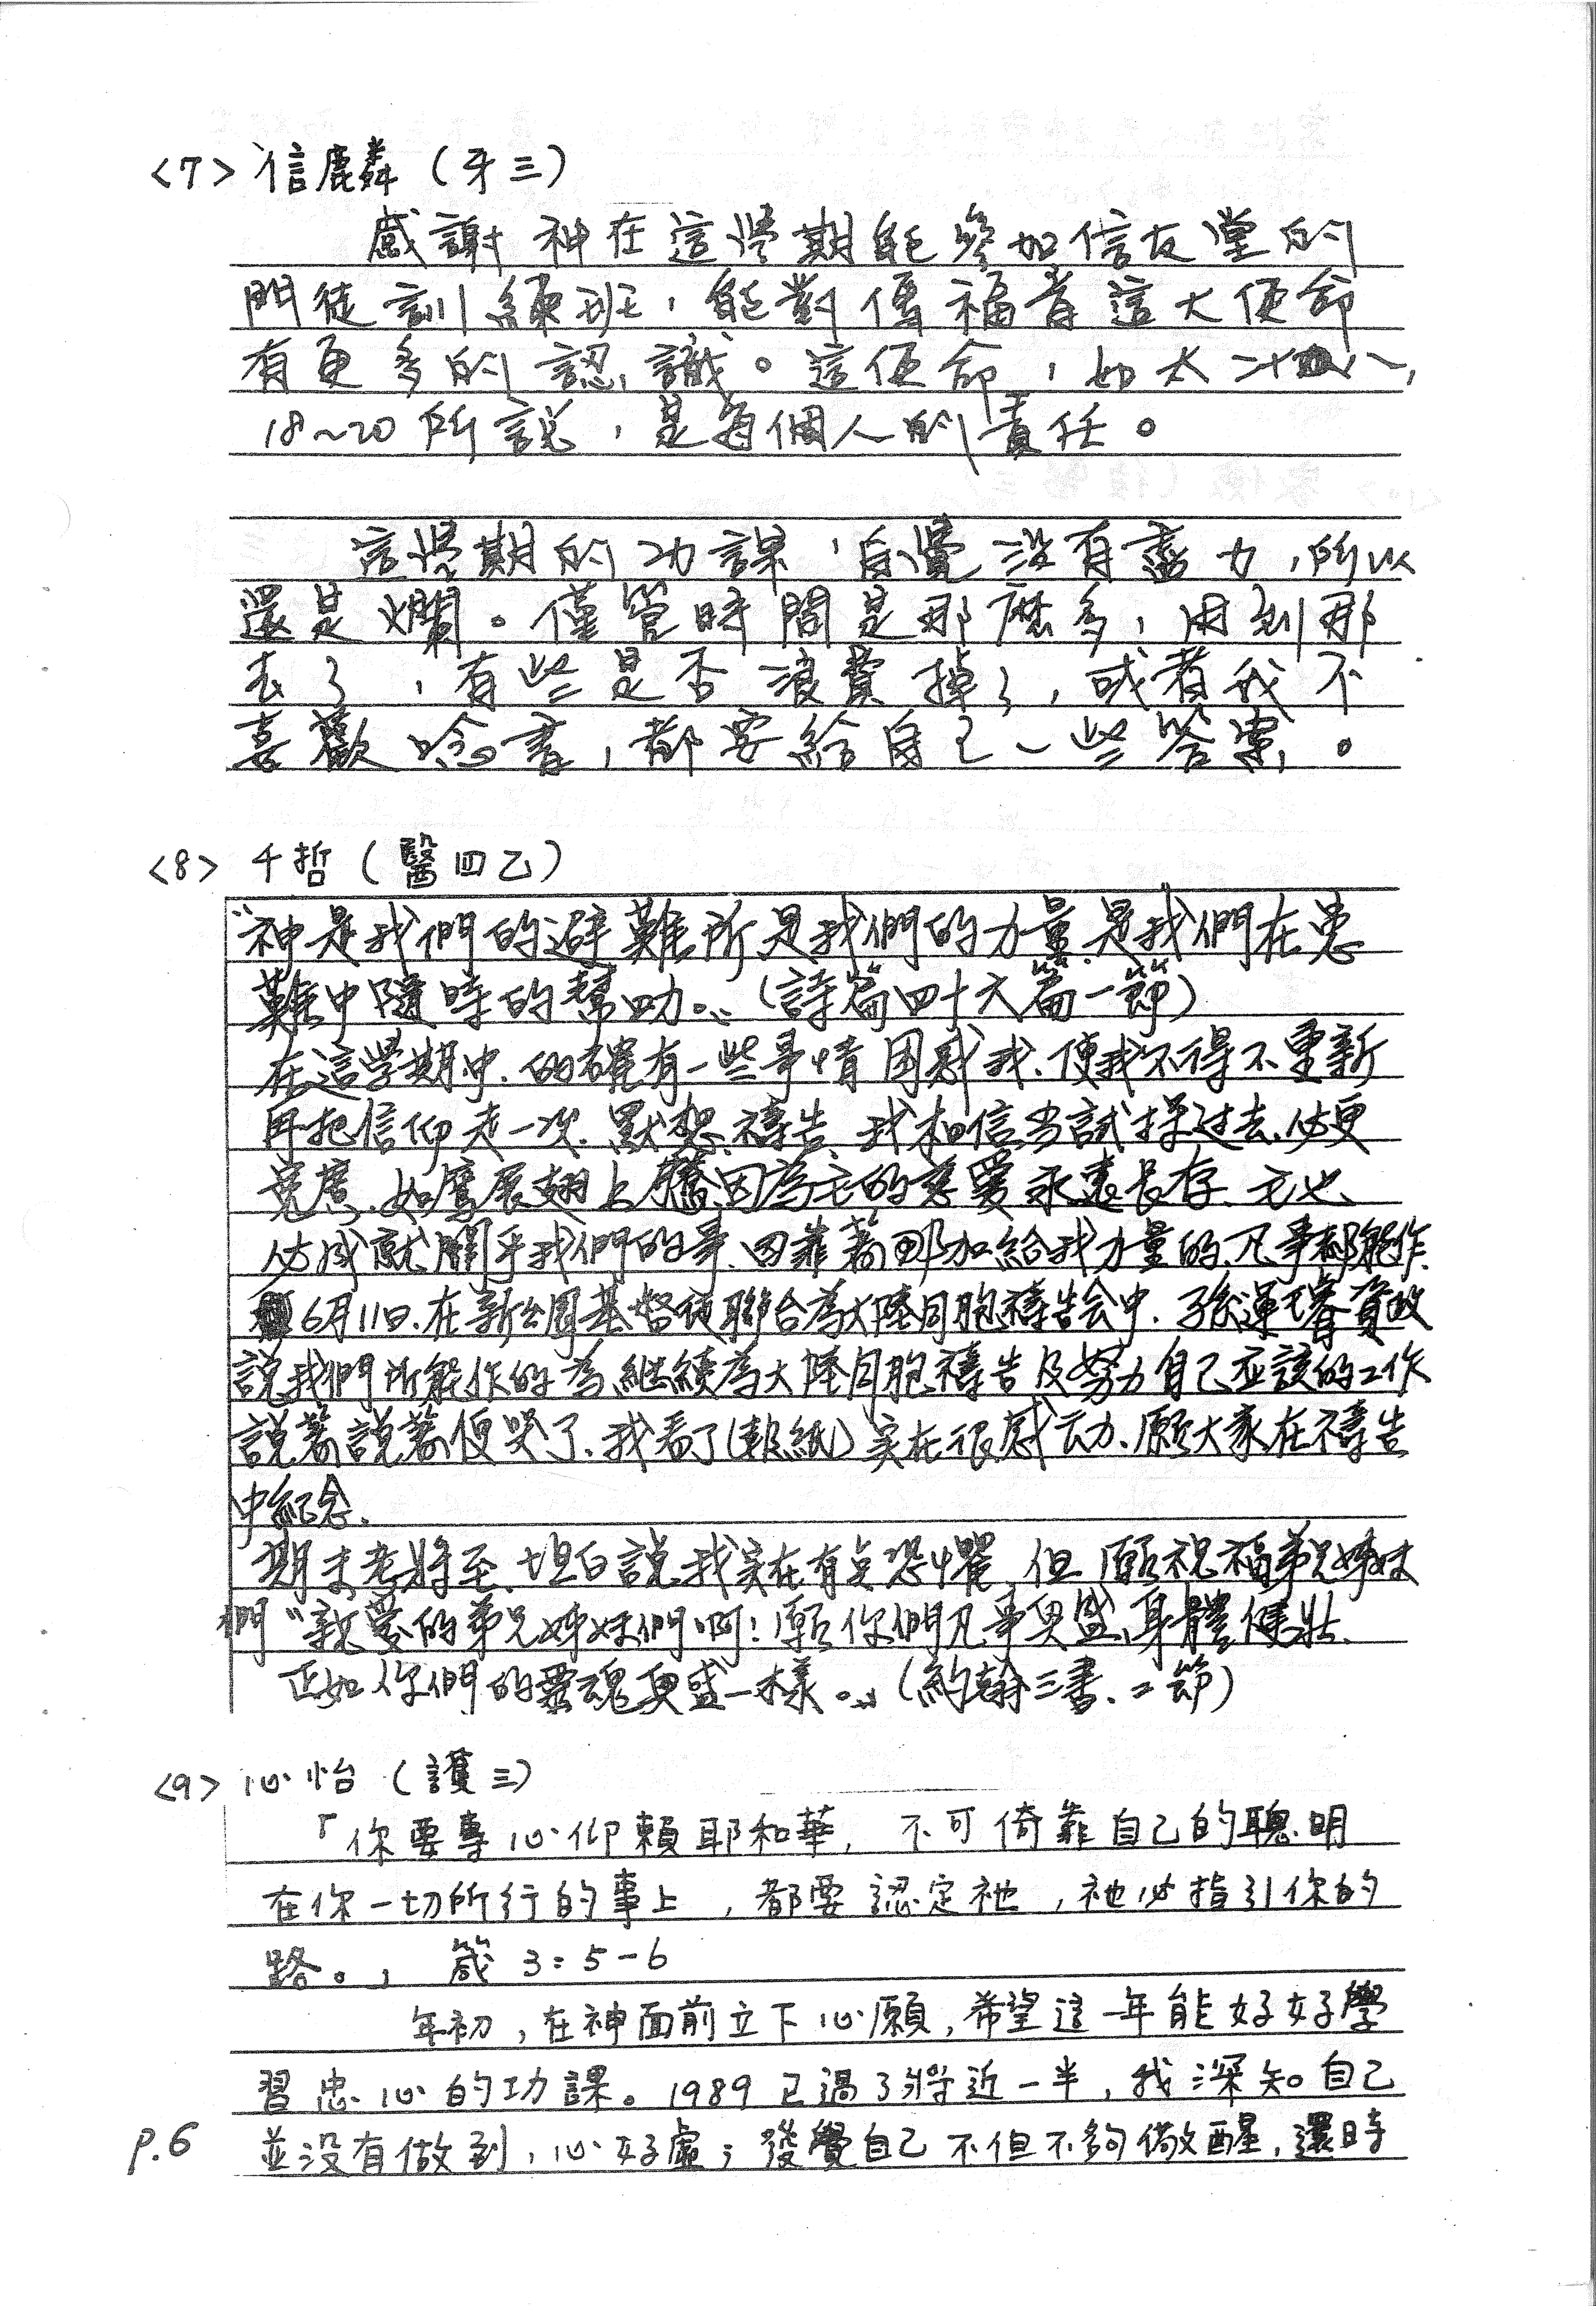 <7> 信麟 (牙三)
感謝神在這學期能參加信友堂的
門徒訓練班,能對傳福音這大使命
有更多的認識。這使命,如太二十八,
18~20所說,是每個人的責任。
這學期的功課,自覺沒有盡力,所以
還是爛。僅管時間是那麼多,用到那
去了,有些是否浪費掉了,或者我不
喜歡唸書,都要給自己一些答案。
<8> 千哲 (醫四乙)
"神是我們的避難所是我們的力量.是我們在患
難中隨時的幫助。"(詩篇四十六篇一節)
在這學期中.的確有一些事情困惑我.使我不得不重新
再把信仰走一次.默想.禱告.我相信.当試探过去.必更
寬廣.如鷹展翅上騰.因為主的慈愛永遠長存.主也
必成就關乎我們的事.因靠著耶加給我力量的.凡事都能作.
6月11日.在新公園基督徒聯合為大陸同胞禱告会中.孫運璿資政
說我們所能作的為繼續為大陸同胞禱告及努力自己应該的工作
說著說著便哭了.我看了(報紙)实在很感动.願大家在禱告
中紀念.
期末考將至.坦白說.我实在有点恐懼.但願祝福弟兄姊妹
們"親愛的弟兄姊妹們啊!願你們凡事興盛.身體健壯.
正如你們的靈魂興盛一樣。"(約翰三書.二節)
<9> 心怡 (護三)
「你要專心仰賴耶和華,不可倚靠自己的聰明
在你一切所行的事上,都要認定祂,祂必指引你的
路。」 箴 3:5-6
年初,在神面前立下心願,希望這一年能好好學
習忠心的功課。1989已過了將近一半,我深知自己
並沒有做到,心好虛;發覺自己不但不夠儆醒,還時
p.6